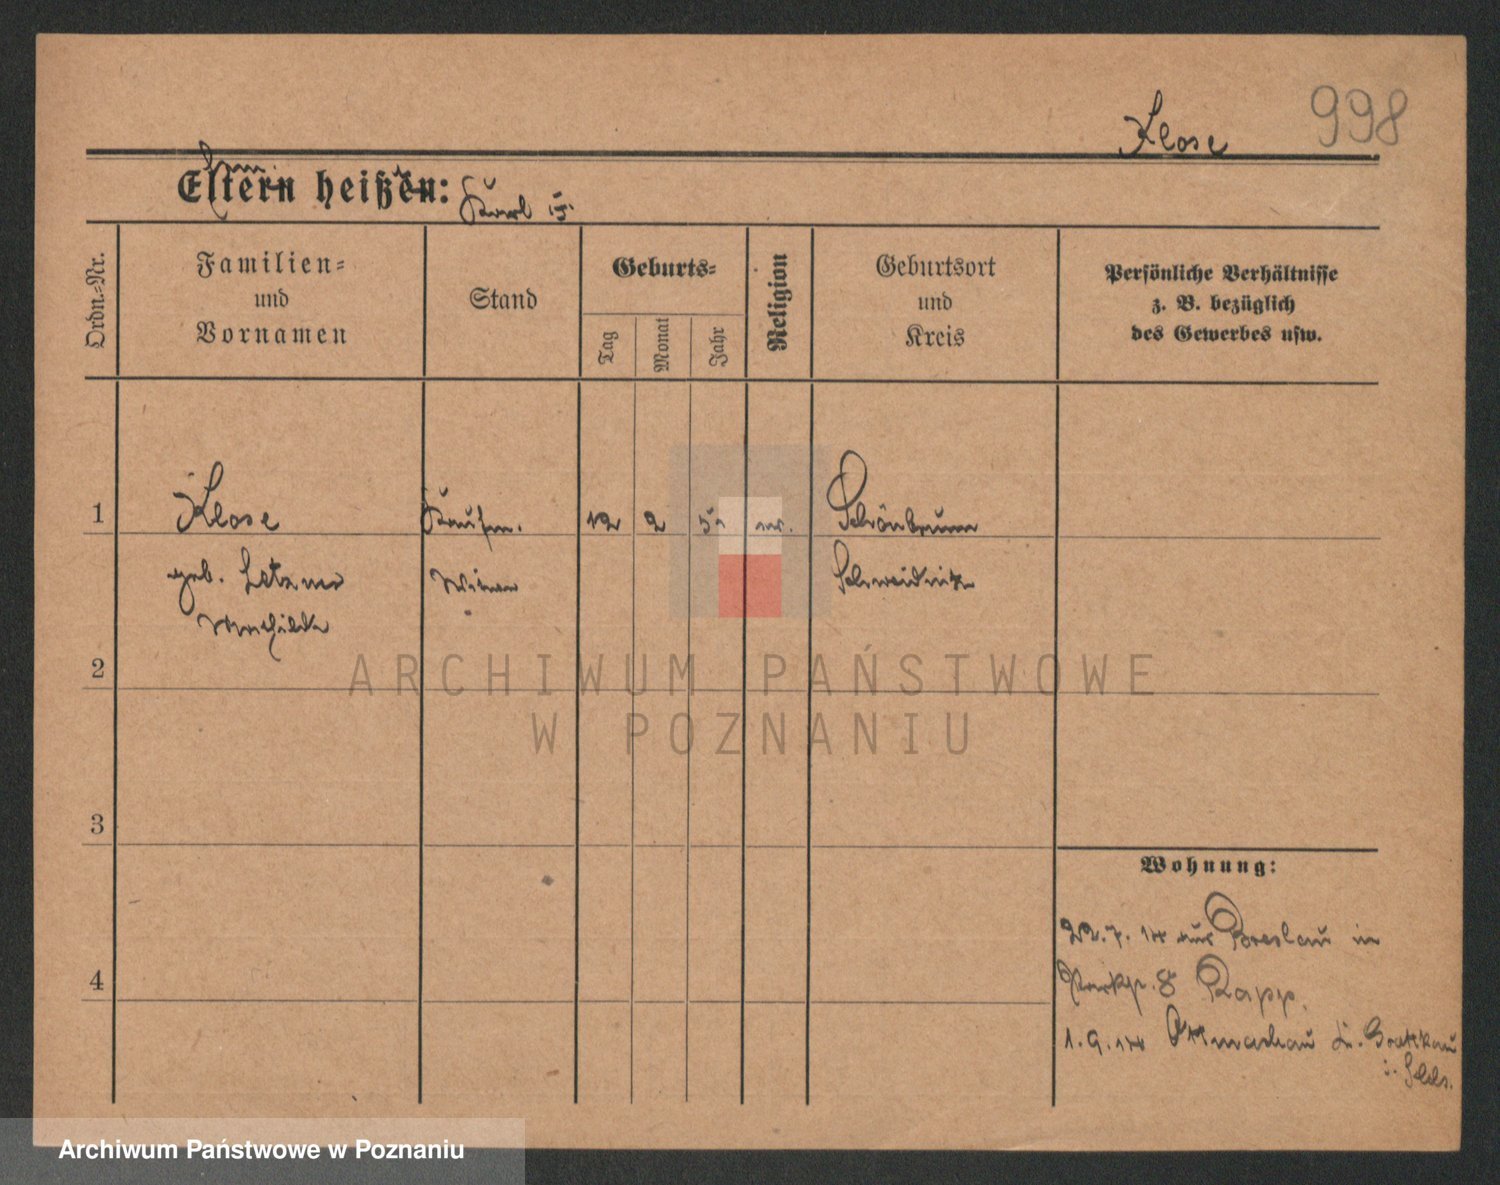 998
Klose
Eltern heißen:
Karl
Ordn.-Nr.
Familien-
und
Vornamen
Stand
Geburts-
Tag
Monat
Jahr
Religion
Geburtsort
und
Kreis
Persönliche Verhältnisse
z. B. bezüglich
des Gewerbes usw.
1
Klose
Kaufm.
12
2
Schönbrunn
geb.
Witwe
Schweidnitz
Mathilde
2
ARCHIWUM PAŃSTWOWE
W POZNANIU
3
Wohnung:
22.7.14 aus Breslau in
4
8 Rapp.
1.9.14 Ottmachau Kr. Grottkau
i. Schls.
Archiwum Państwowe w Poznaniu